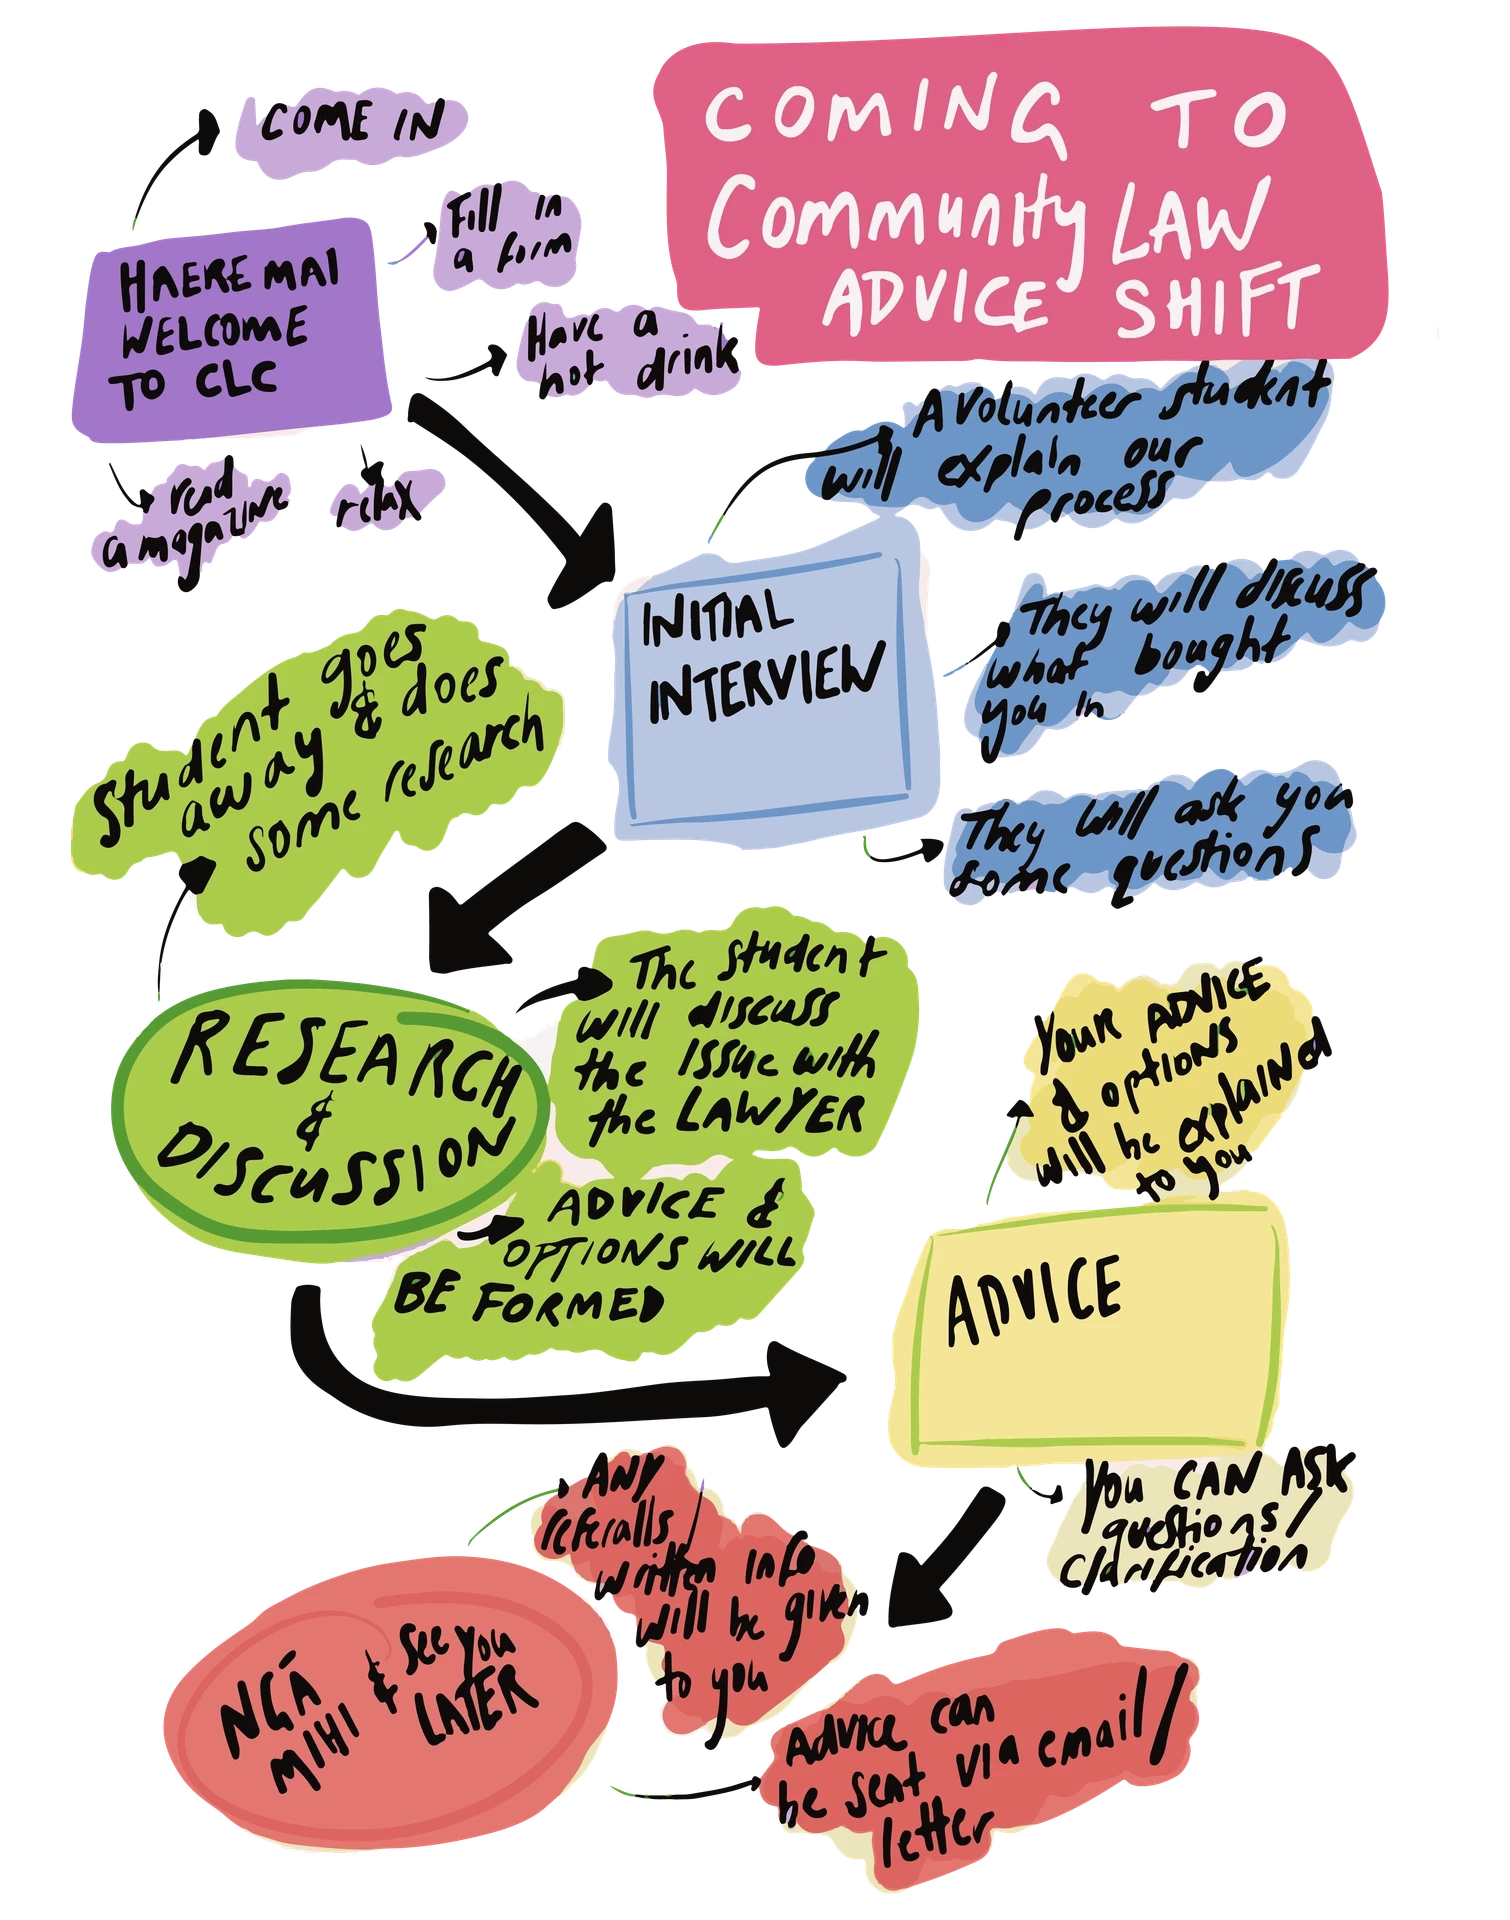 COMING TO
Community LAW
ADVICE SHIFT
HAERE MAI
WELCOME
TO CLC
COME IN
Fill in
a form
Have a
hot drink
relax
read
a magazine
INITIAL
INTERVIEW
A Volunteer student
will explain our
process
They will discuss
what bought
you in
They will ask you
some questions
RESEARCH
&
DISCUSSION
Student goes
away & does
some research
The student
will discuss
the issue with
the LAWYER
ADVICE &
OPTIONS WILL
BE FORMED
ADVICE
Your ADVICE
& options
will be explained
to you
You CAN ASK
questions/
clarification
NGÁ
MIHI & See you
LATER
ANY
referalls/
written info
will be given
to you
Advice can
be sent via email/
letter